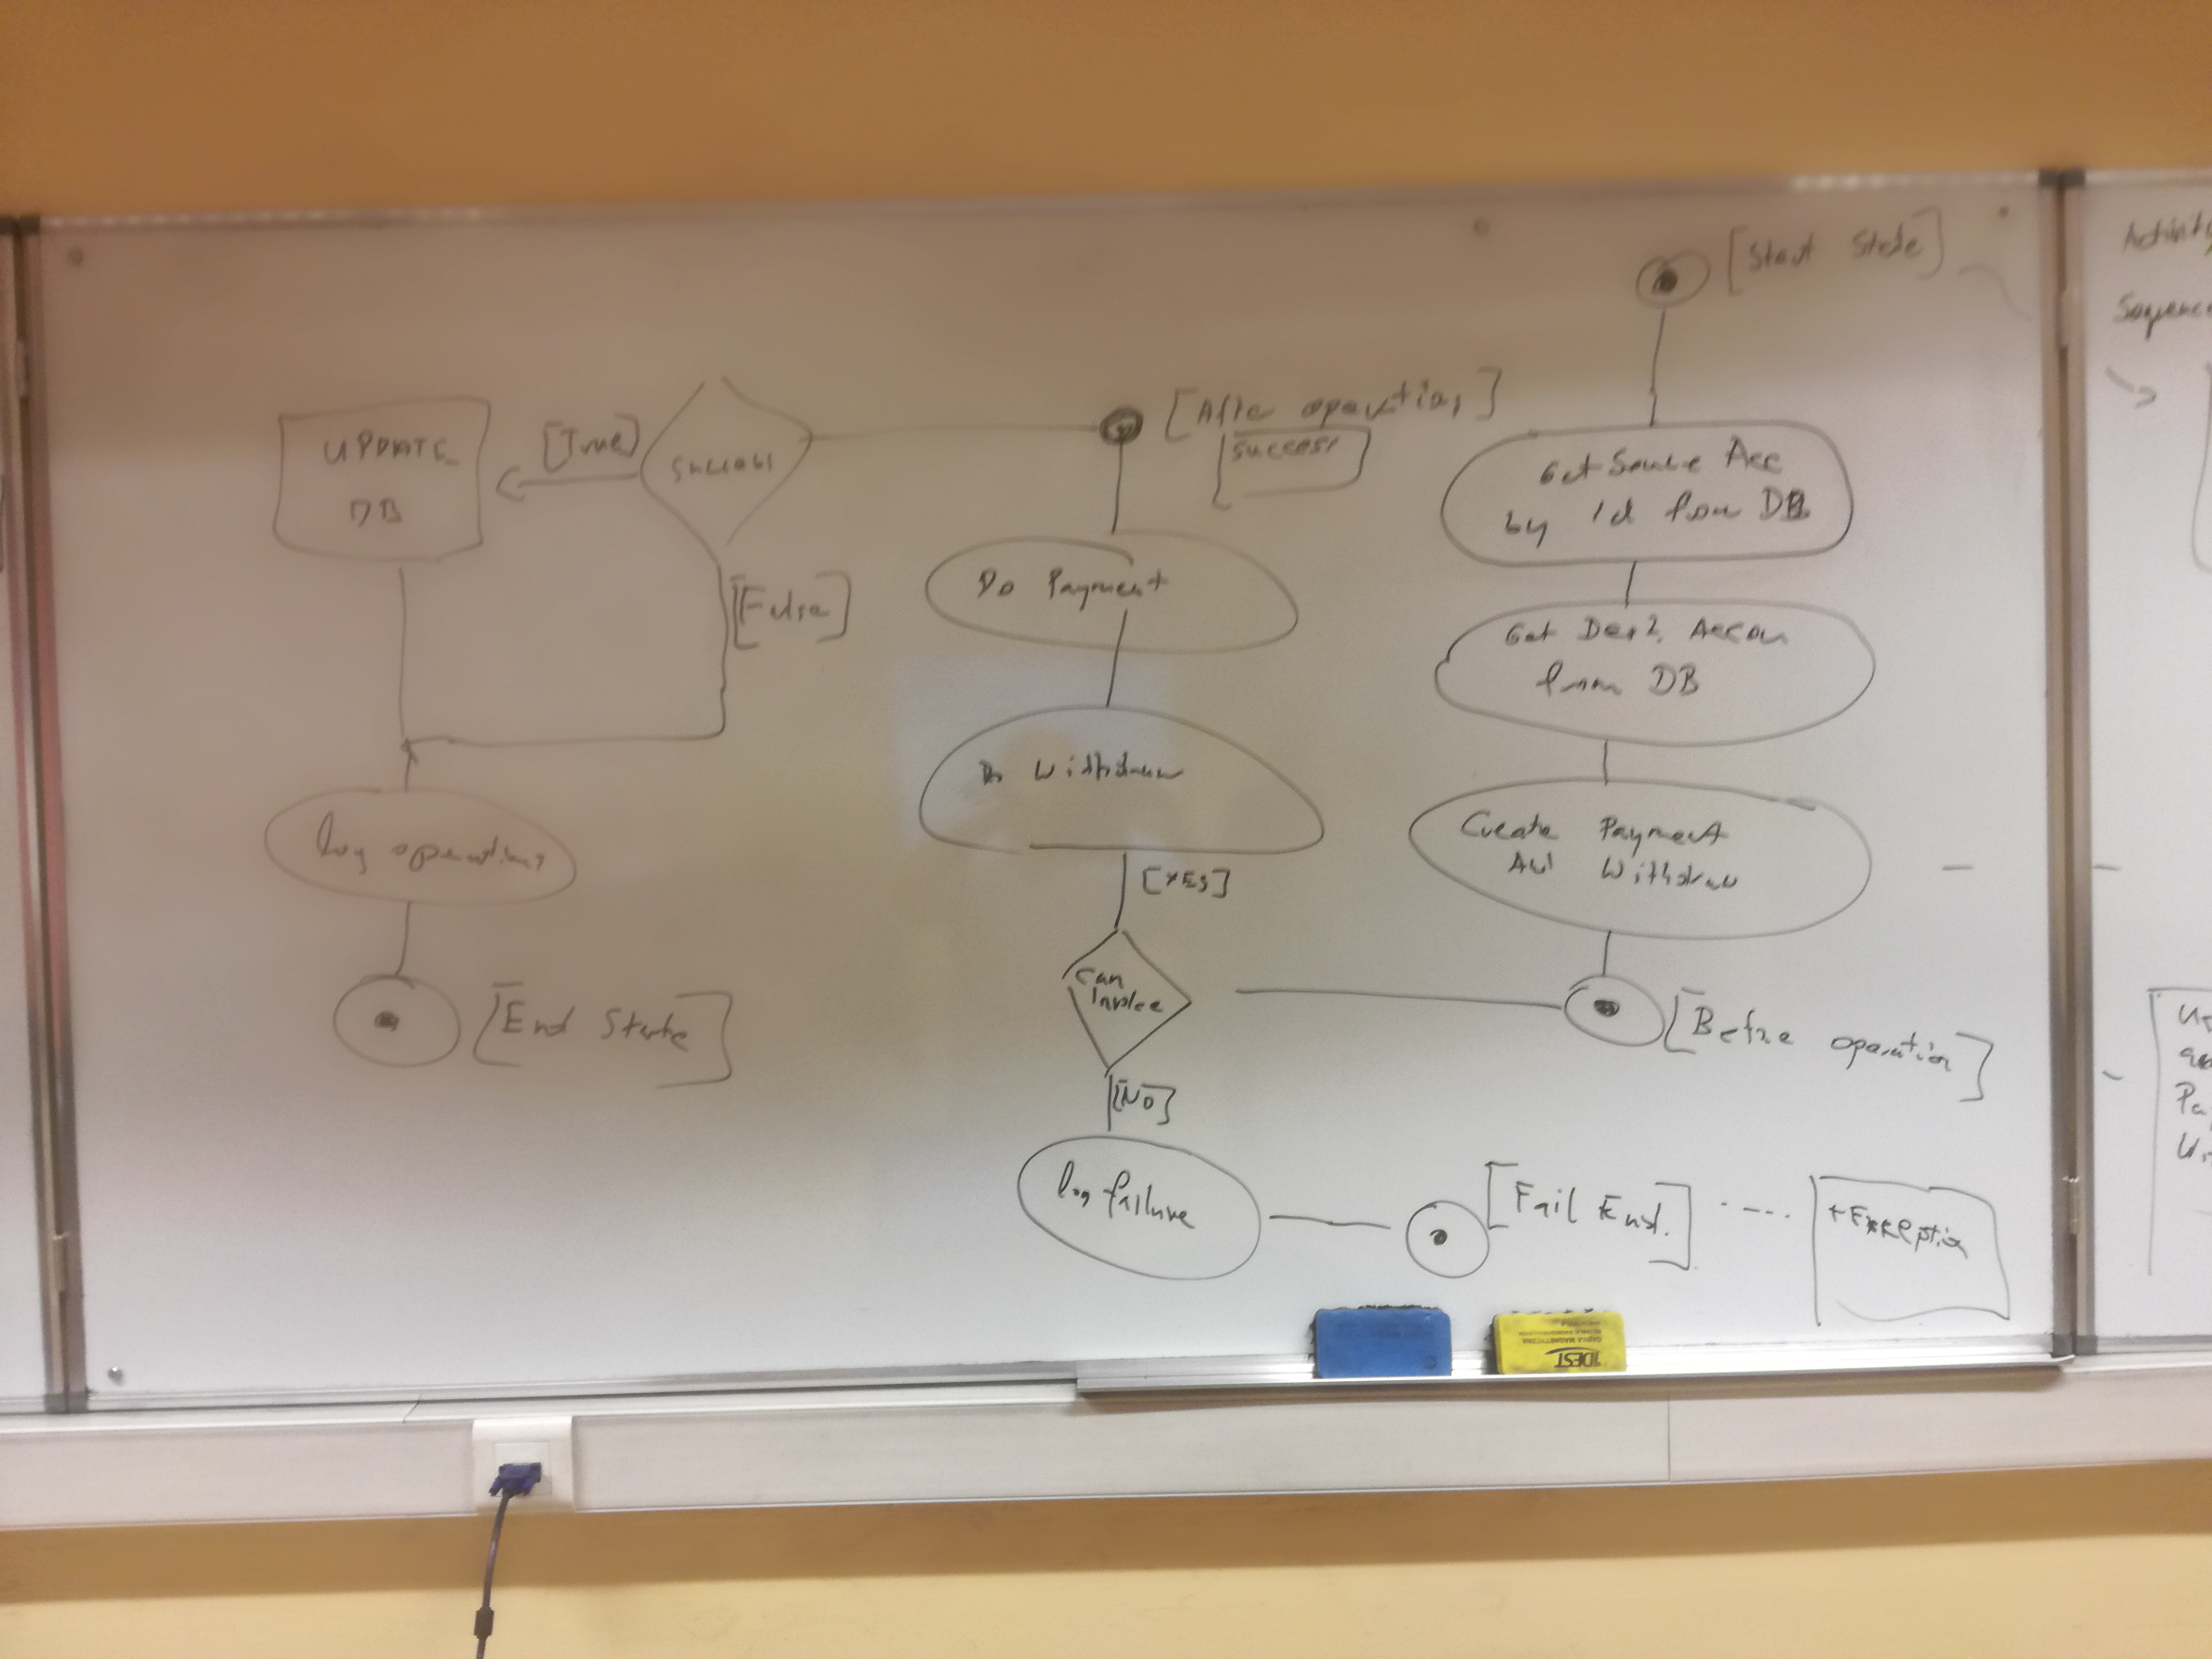 [Start State]
Get Source Acc
by Id from DB
Get Dest. Accou
from DB
Create Payment
And Withdraw
[Before operation]
Can
Invoke
[YES]
[NO]
Do Withdraw
Do Payment
[After operation]
success
success
[True]
[False]
UPDATE
DB
log operations
[End State]
log failure
[Fail End.]
+Exkeption
Activity
Sequence
Pa
IDEST
GĄBKA MAGNETYCZNA